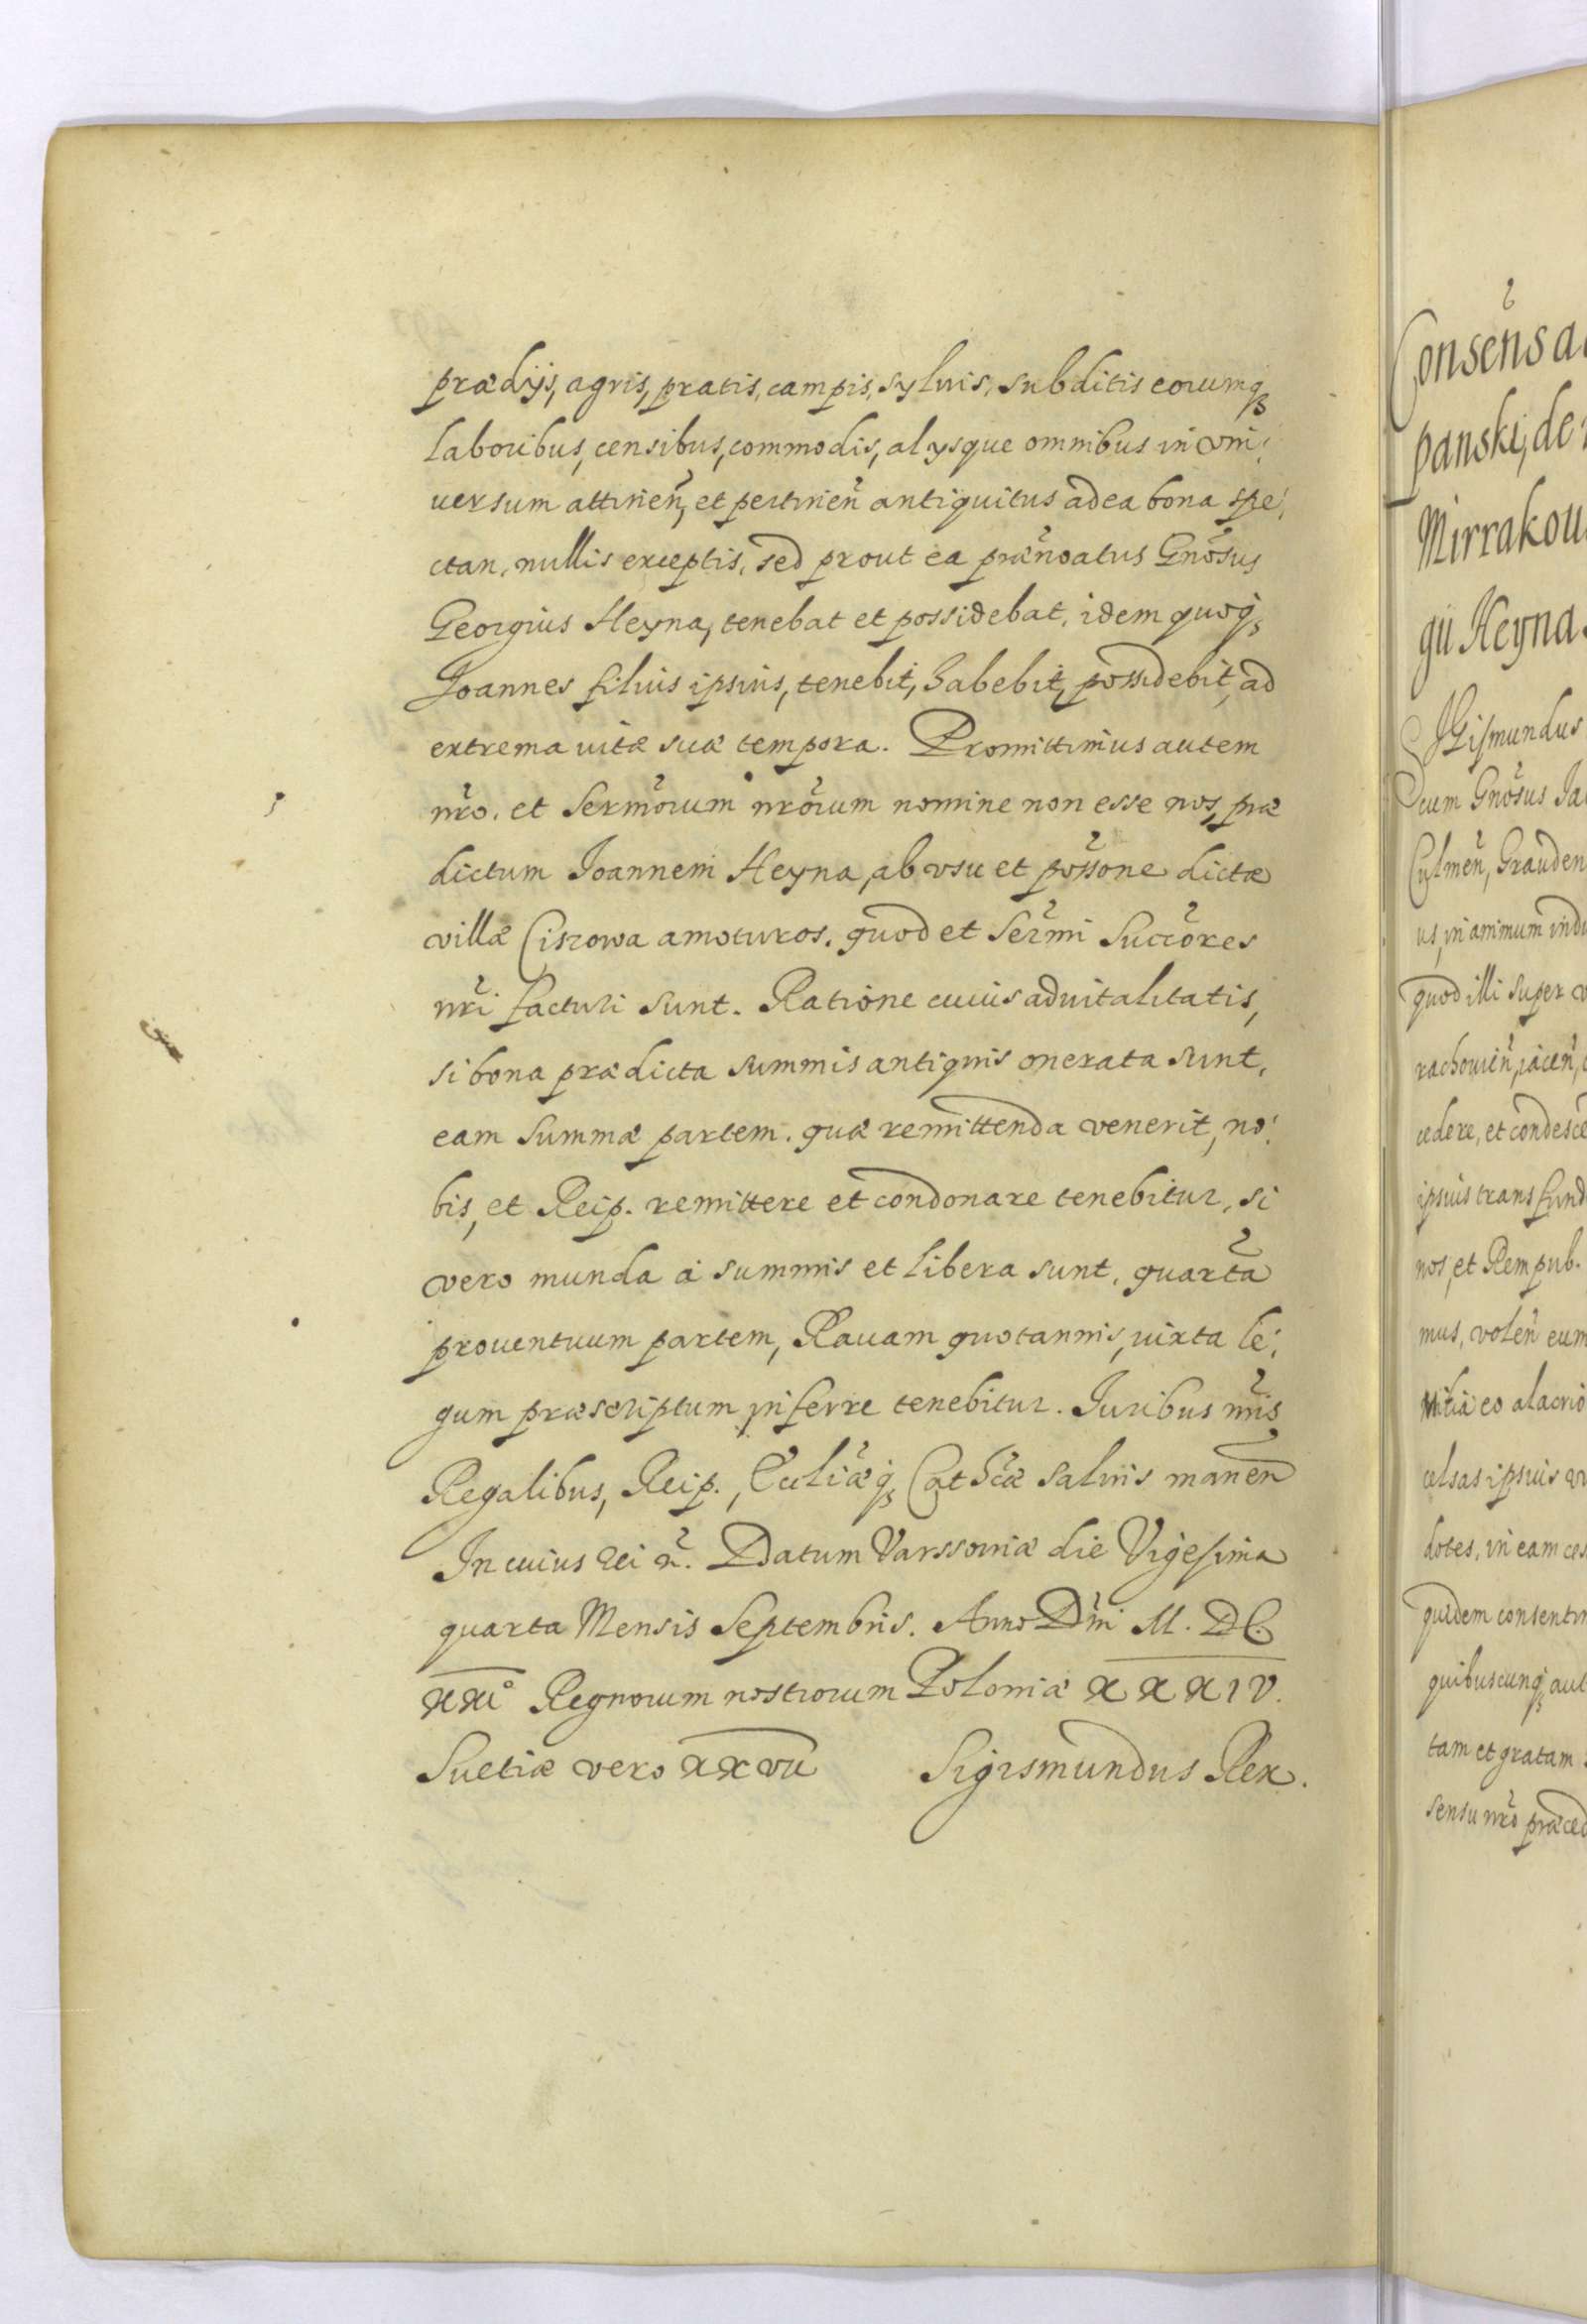 prædijs, agris, pratis, campis, syluis, subditis eorumq;
laboribus, censibus, commodis, alysque omnibus in vni:
uersum attinen̄, et pertinen̄ antiquitus ad ea bona spe:
ctan, nullis exceptis, sed prout ea prænoatus Gnōsus
Georgius Heyna, tenebat et possidebat, idem quoq;
Joannes filius ipsius, tenebit, habebit, possidebit, ad
extrema uitæ suæ tempora. Promittimus autem
nr̄o, et Sermōrum nrōrum nomine non esse nos, præ
dictum Ioannem Heyna, ab vsu et pōssone dictæ
villæ Cisrowa amoturos. quod et Ser̄mi Succōres
nr̄i facturi sunt. Ratione cuius aduitalitatis,
si bona prædicta summis antiquis onerata sunt,
eam summæ partem, quæ remittenda venerit, no:
bis, et Reip. remittere et condonare tenebitur, si
vero munda à summis et libera sunt, quartā
prouentuum partem, Rauam quotannis, iuxta le:
gum præscriptum inferre tenebitur. Iuribus nr̄is
Regalibus, Reip., Eccliǣq; Cathcæ saluis manen̄
In cuius rei &. Datum Varssouiæ die Vigesima
quarta Mensis Septembris. Anno Dn̄i M. DC.
XXI° Regnorum nostrorum Poloniæ XXXIV.
Suetiæ vero XXVII Sigismundus Rex.
Consen̄s a
panski, de
Mirrakou
gii Heyna
SIGismundus
cum Gnōsus Ja
Culmen̄, Grauden
us, in animum indu
quod illi super v
rachouien̄, iacen̄,
cedere, et condesce
ipsius transfund
nos, et Rempub.
mus, volen̄ eum
mitia eo alacrio
celsas ipsius vi
dotes, in eam ces
quidem consentim
quibuscunq; aut
tam et gratam
sensu nr̄o præced